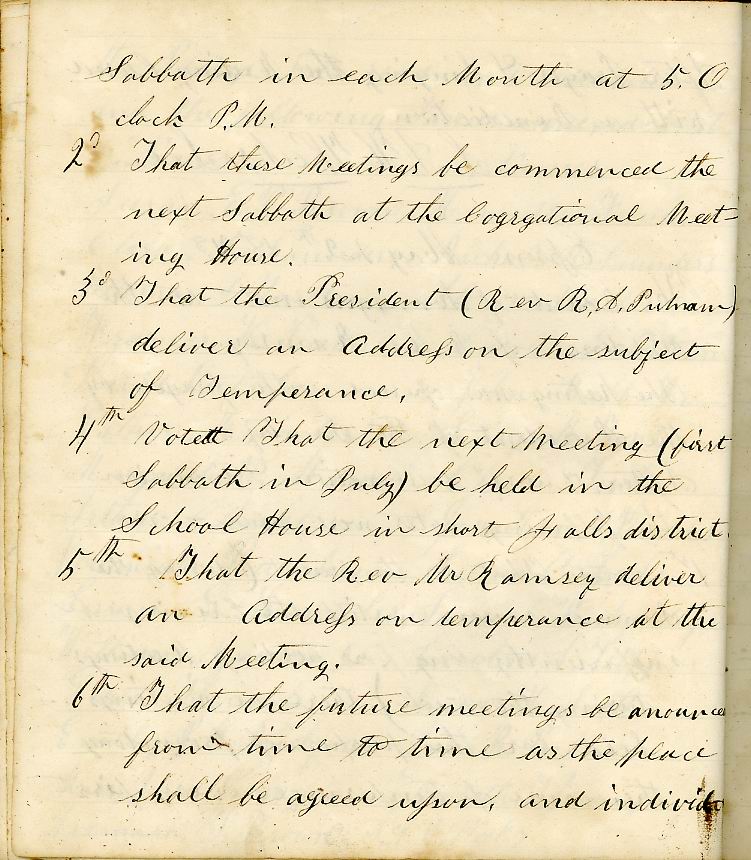 Sabbath in each Month at 5. O
clock P.M.
2d That these Meetings be commenced the
next Sabbath at the Cogrgational Meet-
ing House.
3d That the President (Rev R. A. Putnam)
deliver an Address on the subject
of Temperance.
4th Voted That the next Meeting (first
Sabbath in July) be held in the
School House in short Falls district.
5th That the Rev Mr Ramsey deliver
an Address on temperance at the
said Meeting.
6th That the future meetings be anounced
from time to time as the place
shall be agreed upon, and individ